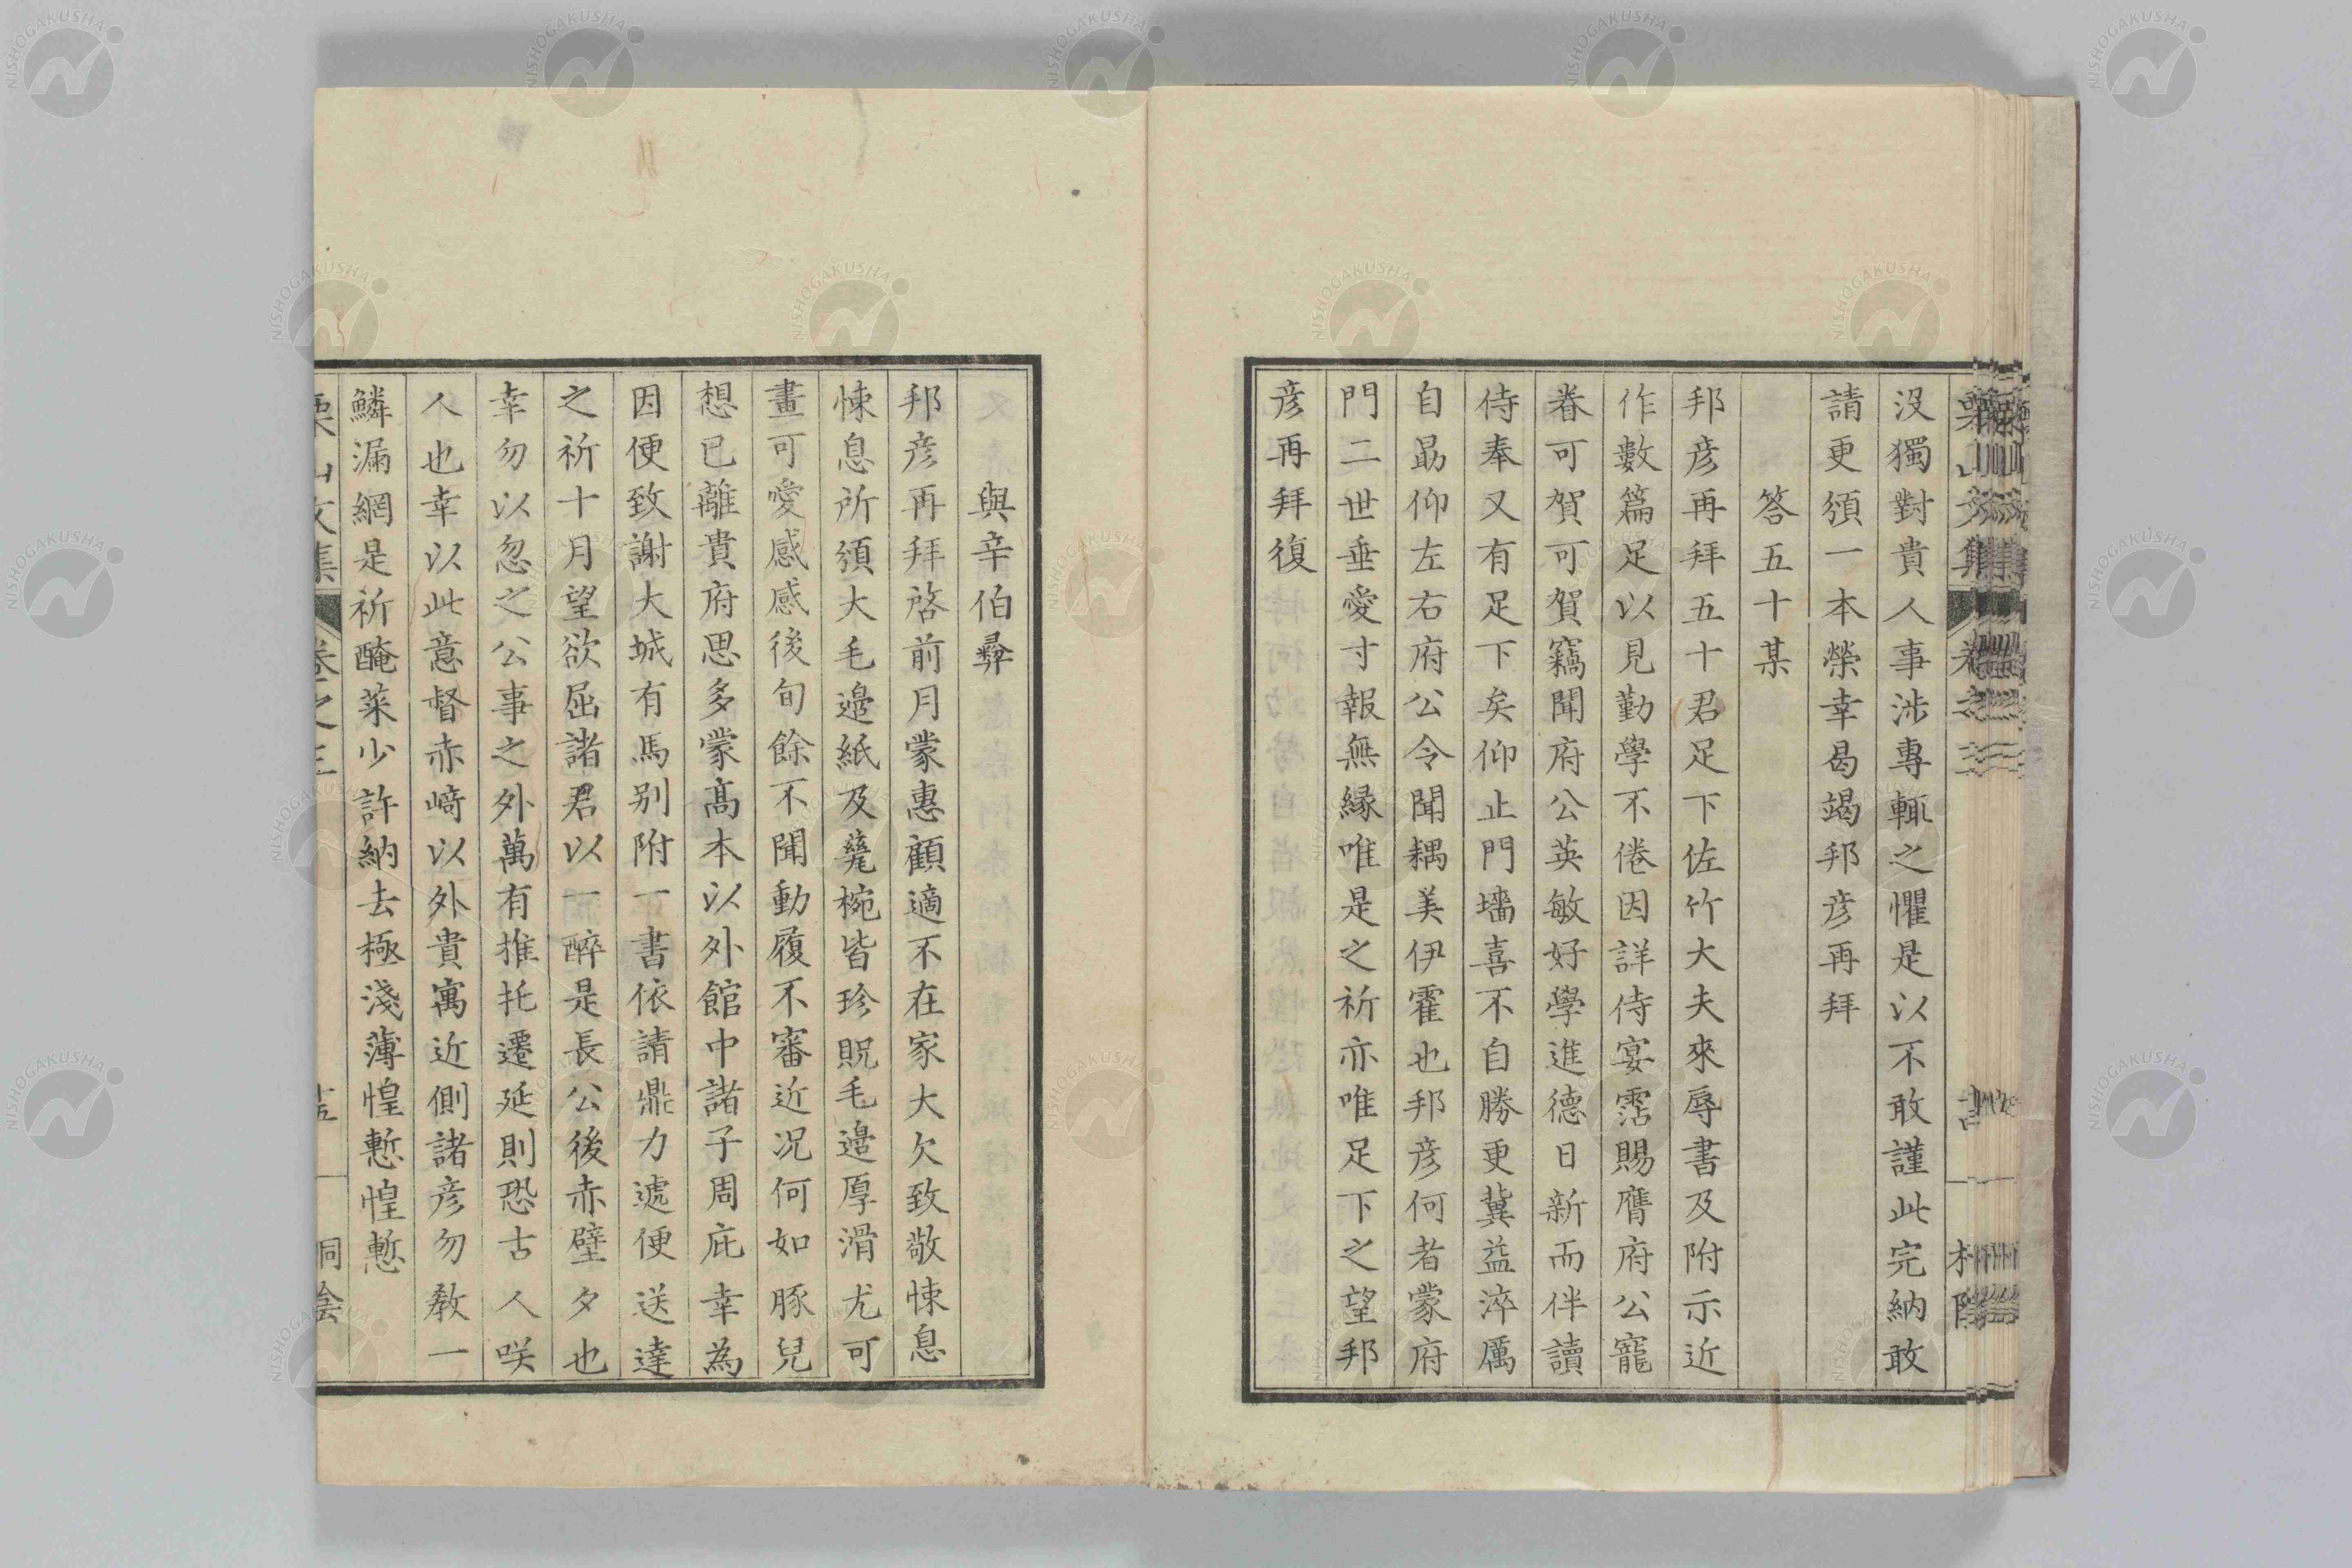 没獨對貴人事涉專輒之懼是以不敢謹此完納敢
請更須一本榮幸曷竭邦彦再拜
答五十某
邦彦再拜五十君足下佐竹大夫來辱書及附示近
作數篇足以見勤學不倦因詳侍宴霑賜膺府公寵
眷可賀可賀竊聞府公英敏好學進德日新而伴讀
侍奉又有足下矣仰止門墻喜不自勝更冀益淬厲
自勗仰左右府公令聞耦美伊霍也邦彦何者蒙府
門二世垂愛寸報無緣唯是之祈亦唯足下之望邦
彦再拜復
與辛伯彝
邦彦再拜啓前月蒙惠顧適不在家大欠致敬悚息
悚息所須大毛邉紙及甆椀皆珍貺毛邉厚滑尤可
畫可愛感感後旬餘不聞動履不審近况何如豚兒
想已離貴府思多蒙髙本以外館中諸子周庇幸為
因便致謝大城有馬别附一書依請鼎力遞便送達
之祈十月望欲屈諸君以一醉是長公後赤壁夕也
幸勿以忽之公事之外萬有推托遷延則恐古人咲
人也幸以此意督赤﨑以外貴寓近側諸彦勿教一
鱗漏網是祈醃菜少許納去極淺薄惶慙惶慙
栗山文集
卷之三
十五
桐陰
NISHOGAKUSHA